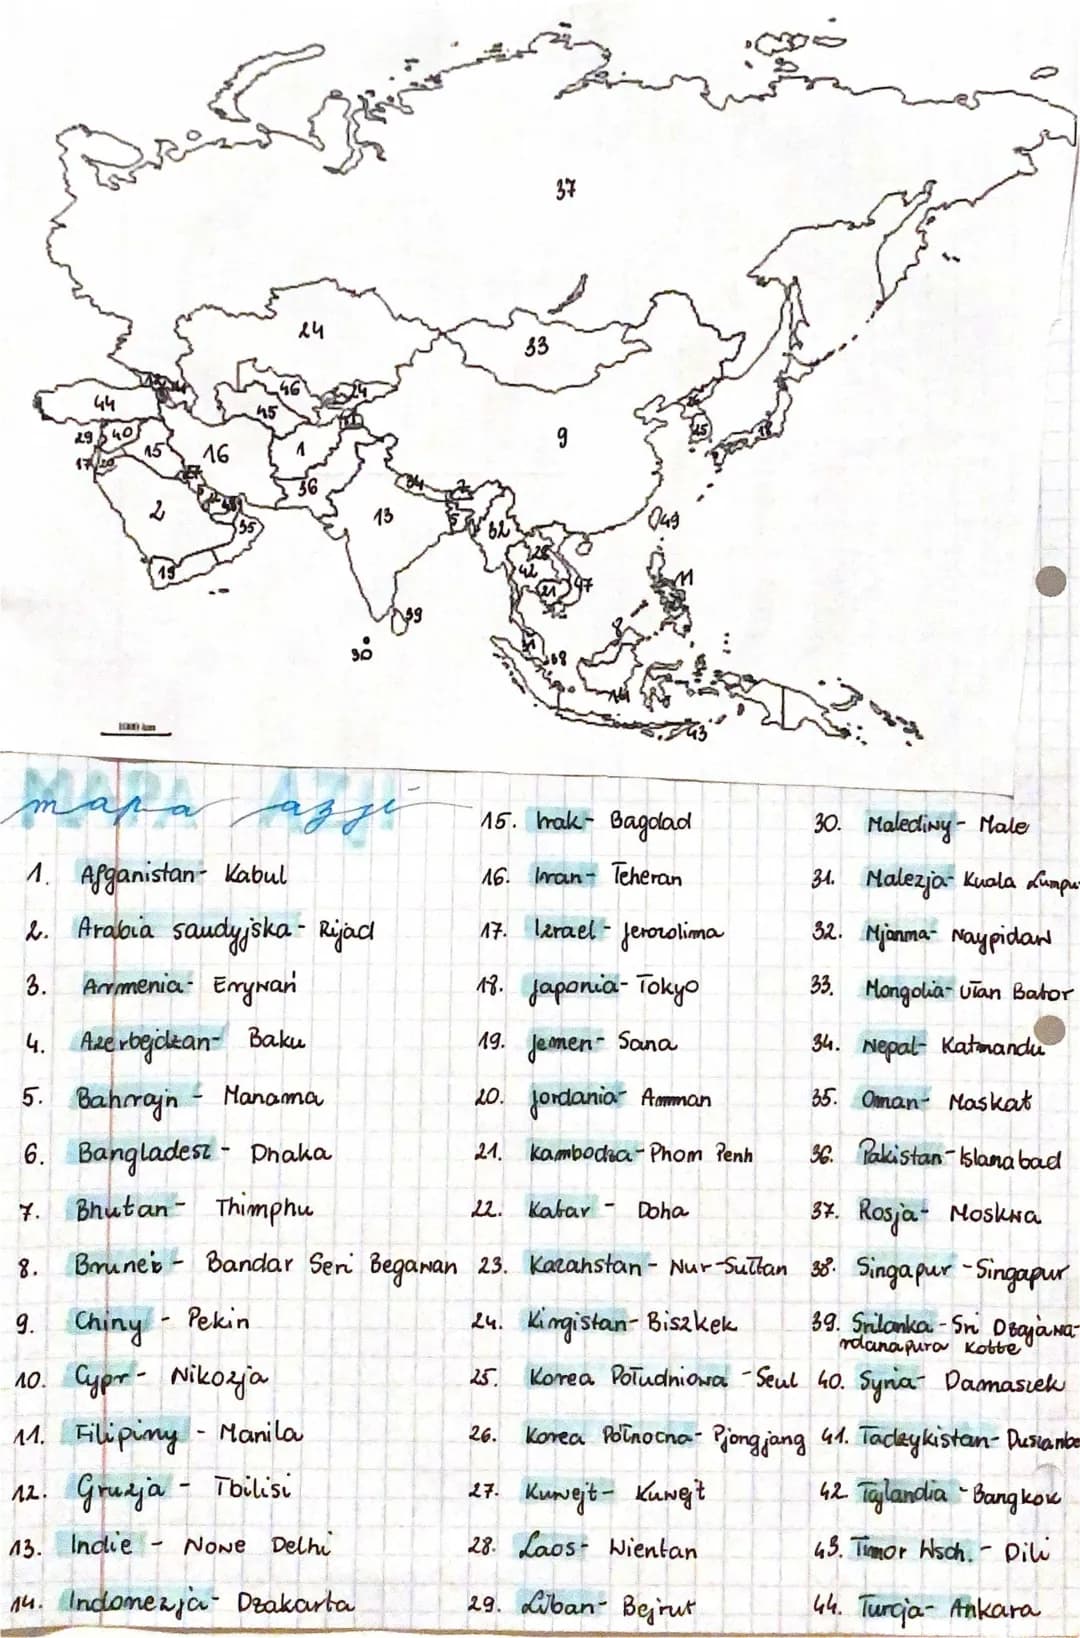 37
24
33
12
44
46
24
45
26
25
18
29
40
15
16
1
9
17
20
27
36
34
7
2
13
5
32
35
19
49
28
42
21
47
11
39
30
8
31
38
14
43
1000 km
mapa azji
MAPA AZJI
1. Afganistan - Kabul
2. Arabia saudyjska - Rijad
3. Armenia - Erywań
4. Azerbejdżan - Baku
5. Bahrajn - Manama
6. Bangladesz - Dhaka
7. Bhutan - Thimphu
8. Brunei - Bandar Seri Begawan
9. Chiny - Pekin
10. Cypr - Nikozja
11. Filipiny - Manila
12. Gruzja - Tbilisi
13. Indie - Nowe Delhi
14. Indonezja - Dżakarta
15. Irak - Bagdad
16. Iran - Teheran
17. Izrael - Jerozolima
18. Japonia - Tokyo
19. Jemen - Sana
20. Jordania - Amman
21. Kambodża - Phom Penh
22. Katar - Doha
23. Kazahstan - Nur-Sułtan
24. Kirgistan - Biszkek
25. Korea Południowa - Seul
26. Korea Północna - Pjongjang
27. Kuwejt - Kuwejt
28. Laos - Wientan
29. Liban - Bejrut
30. Malediwy - Male
31. Malezja - Kuala Lumpu
32. Mjanma - Naypidaw
33. Mongolia - Ułan Bator
34. Nepal - Katmandu
35. Oman - Maskat
36. Pakistan - Islanabad
37. Rosja - Moskwa
38. Singapur - Singapur
39. Srilanka - Sri Dżajawa-
rdanapura Kotte
40. Syria - Damaszek
41. Tadżykistan - Duszanbe
42. Tajlandia - Bangkok
43. Timor Wsch. - Dili
44. Turcja - Ankara